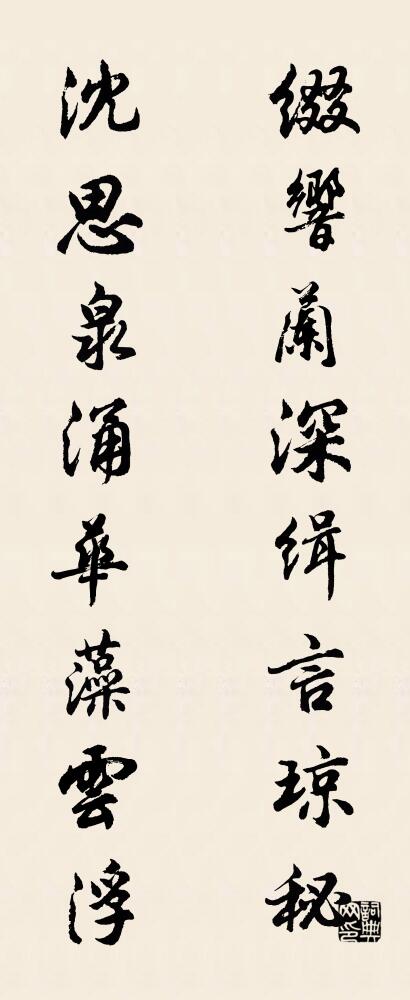 綴響蘭深緝言琼秘
沈思泉涌華藻雲浮
詞典网印